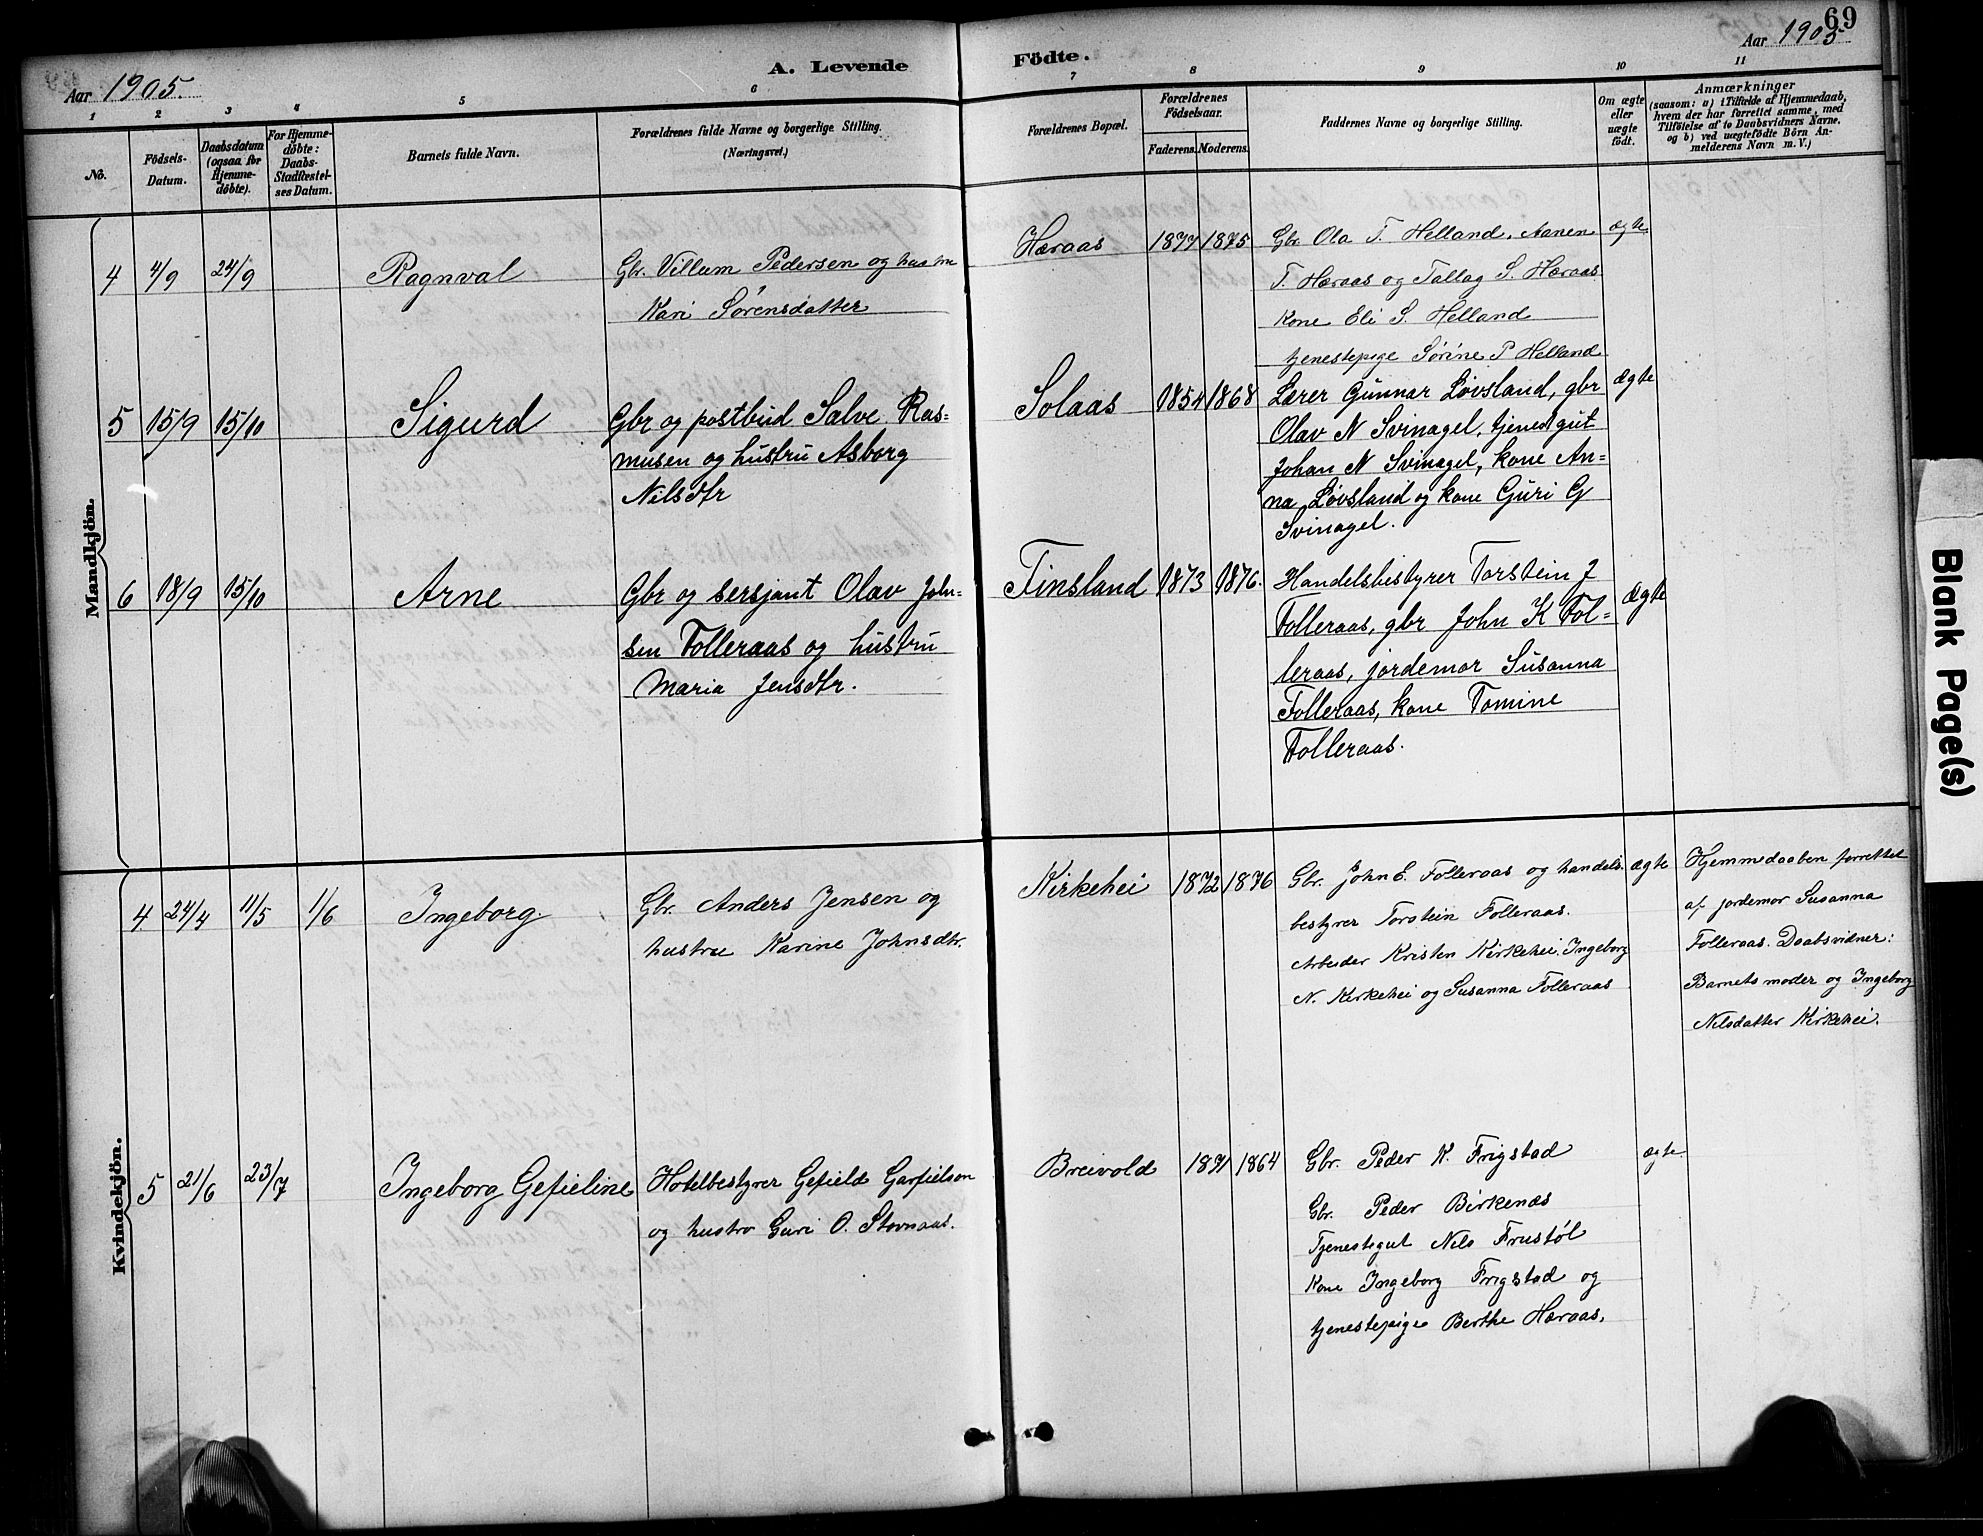 69
Aar 1905.
A. Levende
Födte.
Aar 1905
1 2 3 4 5 6 7 8 9 10 11
No.
Födsels-
Datum.
Daabsdatum
(ogsaa for
Hjemme-
döbte).
For Hjemme-
döbte:
Daabs-
Stadfæstel-
ses Datum.
Barnets fulde Navn.
Forældrenes fulde Navne og borgerlige Stilling.
(Næringsvei.)
Forældrenes Bopæl.
Forældrenes
Födselsaar.
Faderens. Moderens.
Faddernes Navne og borgerlige Stilling.
Om ægte
eller
uægte
födt.
Anmærkninger
(saasom: a) i Tilfælde af Hjemmedaab,
hvem der har forrettet samme, med
Tilföielse af to Daabsvidners Navne,
og b) ved uægtefödte Börn An-
melderens Navn m. V.)
Mandkjön.
4 4/9 24/9 Ragnval
Gbr. Villum Pedersen og hustru
Kari Sørensdatter
Hæraas 1877 1875
Gbr. Ola T. Helland, Aanen
T. Hæraas og Tallag S. Hæraas
Kone Eli S. Helland
tjenestepige Sørine P Helland
ægte
5 15/9 15/10 Sigurd
Gbr og postbud Salve Ras=
musen og hustru Asborg
Nilsdtr
Solaas 1854 1868
Lærer Gunnar Løvsland, gbr
Olav N Svinagel, tjenestgut
Johan N Svinagel, kone An=
na Løvsland og kone Guri G
Svinagel.
ægte
6 18/9 15/10 Arne
Gbr og sersjant Olav John=
sen Folleraas og hustru
Maria Jensdtr.
Finsland 1873 1876.
Handelsbestyrer Torstein J
Folleraas, gbr John K Fol=
leraas, jordemor Susanna
Folleraas, kone Tomine
Folleraas.
ægte
Kvindekjön.
4 24/4 11/5 1/6 Ingeborg.
Gbr. Anders Jensen og
hustru Karine Johnsdtr.
Kirkehei 1872 1876
Gbr. John E. Folleraas og handels-
bestyrer Torstein Folleraas.
Arbeider Kristen Kirkehei, Ingeborg
N. Kirkehei og Susanna Folleraas
ægte
Hjemmedaaben forrettet
af jordemor Susanna
Folleraas. Daabsvidner:
Barnets moder og Ingeborg
Nilsdatter Kirkehei.
5 21/6 23/7 Ingeborg Gefieline
Hotelbestyrer Gefield Garfielson
og hustro Guri O. Stovnaas.
Breivold 1871 1864
Gbr. Peder K. Frigstad
Gbr. Peder Birkenæs
Tjenestegut Nils Frustøl
Kone Ingeborg Frigstad og
tjenestepige Berthe Hæraas.
ægte
Blank Page(s)